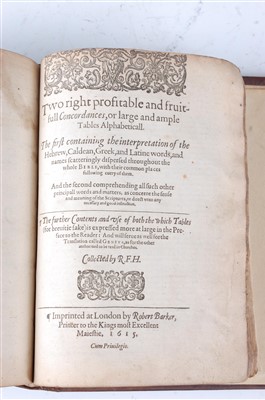 Two right profitable and fruit-
full Concordances, or large and ample
Tables Alphabeticall.
The first containing the interpretation of the
Hebrew, Caldean, Greek, and Latine words, and
names scatteringly dispersed throughout the
whole BIBLE, with their common places
following euery of them.
And the second comprehending all such other
principall words and matters, as concerne the sense
and meaning of the Scriptures, or direct vnto any
necessary and good
¶ The further Contents and vse of both the which Tables
(for breuitie sake) is expressed more at large in the Pre-
face to the Reader: And will serue as well for the
Translation called GENEVA, as for the other
authorised to be read in Churches.
Collected by R.F.H.
¶ Imprinted at London by Robert Barker,
Printer to the Kings most Excellent
Maiestie, 1615.
Cum Priuilegio.